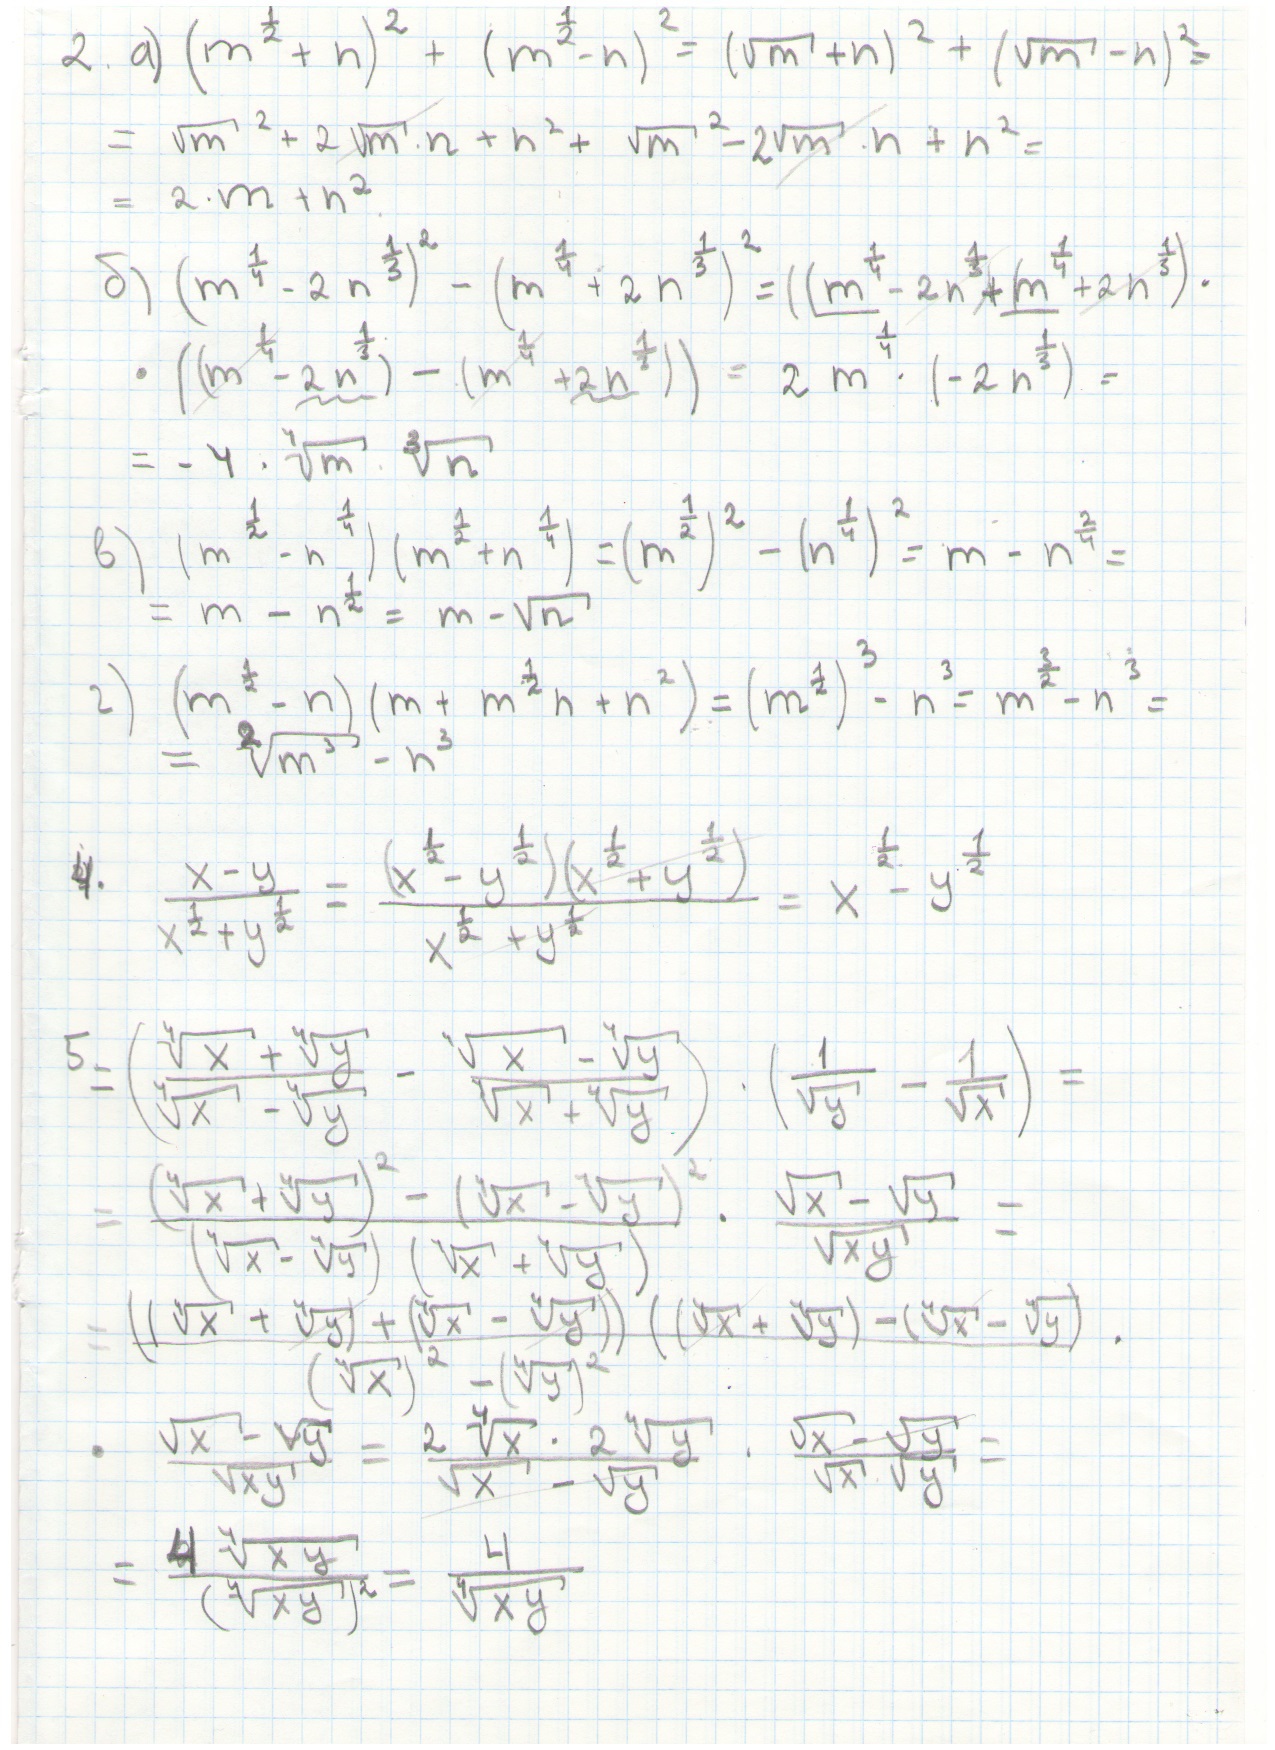 2. а) (m^{1/2} + n)² + (m^{1/2} - n)² = (√m + n)² + (√m - n)² =
= √m² + 2√m · n + n² + √m² - 2√m · n + n² =
= 2·m + n²
б) (m^{1/4} - 2n^{1/3})² - (m^{1/4} + 2n^{1/3})² = ((m^{1/4} - 2n^{1/3} + (m^{1/4} + 2n^{1/3}) ·
· ((m^{1/4} - 2n^{1/3}) - (m^{1/4} + 2n^{1/3})) = 2m^{1/4} · (-2n^{1/3}) =
= -4 · ⁴√m · ³√n
в) (m^{1/2} - n^{1/4})(m^{1/2} + n^{1/4}) = (m^{1/2})² - (n^{1/4})² = m - n^{2/4} =
= m - n^{1/2} = m - √n
г) (m^{1/2} - n)(m + m^{1/2}n + n²) = (m^{1/2})³ - n³ = m^{3/2} - n³ =
= ²√m³ - n³
4. (x - y)/(x^{1/2} + y^{1/2}) = (x^{1/2} - y^{1/2})(x^{1/2} + y^{1/2})/(x^{1/2} + y^{1/2}) = x^{1/2} - y^{1/2}
5 = ((⁴√x + ⁴√y)/(⁴√x - ⁴√y) - (⁴√x - ⁴√y)/(⁴√x + ⁴√y)) · (1/√y - 1/√x) =
= ((⁴√x + ⁴√y)² - (⁴√x - ⁴√y)²)/((⁴√x - ⁴√y)(⁴√x + ⁴√y)) · (√x - √y)/√xy =
= ((⁴√x + ⁴√y) + (⁴√x - ⁴√y))((⁴√x + ⁴√y) - (⁴√x - ⁴√y)/((⁴√x)² - (⁴√y)²) ·
· (√x - √y)/√xy = (2⁴√x · 2⁴√y)/(√x - √y) · (√x - √y)/(√x · √y) =
= 4⁴√xy/(⁴√xy)² = 4/⁴√xy